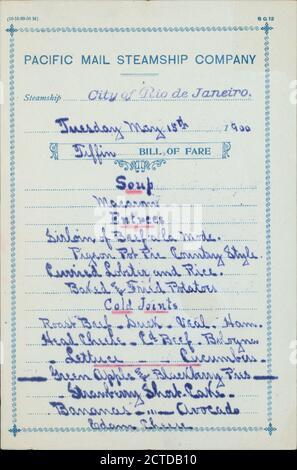 (10-10-99-50 M)
B G 12
PACIFIC MAIL STEAMSHIP COMPANY
Steamship City of Rio de Janeiro.
Tuesday May 15th 1900
Tiffin BILL OF FARE
Soup
Macaroni
Entrees
Sirloin of Beef a la Mode.
Pigeon Pot Pie Country Style.
Curried Lobster and Rice.
Baked & Fried Potatoes
Cold Joints
Roast Beef - Duck - Veal - Ham.
Head Cheese - Cd Beef - Bologna
- Lettuce - - Cucumbers -
- Green Apple & Blackberry Pies -
- Strawberry Short Cake -
Bananas - " - Avocado
Edam Cheese
alamy
Image ID: 2CTDB10
www.alamy.com